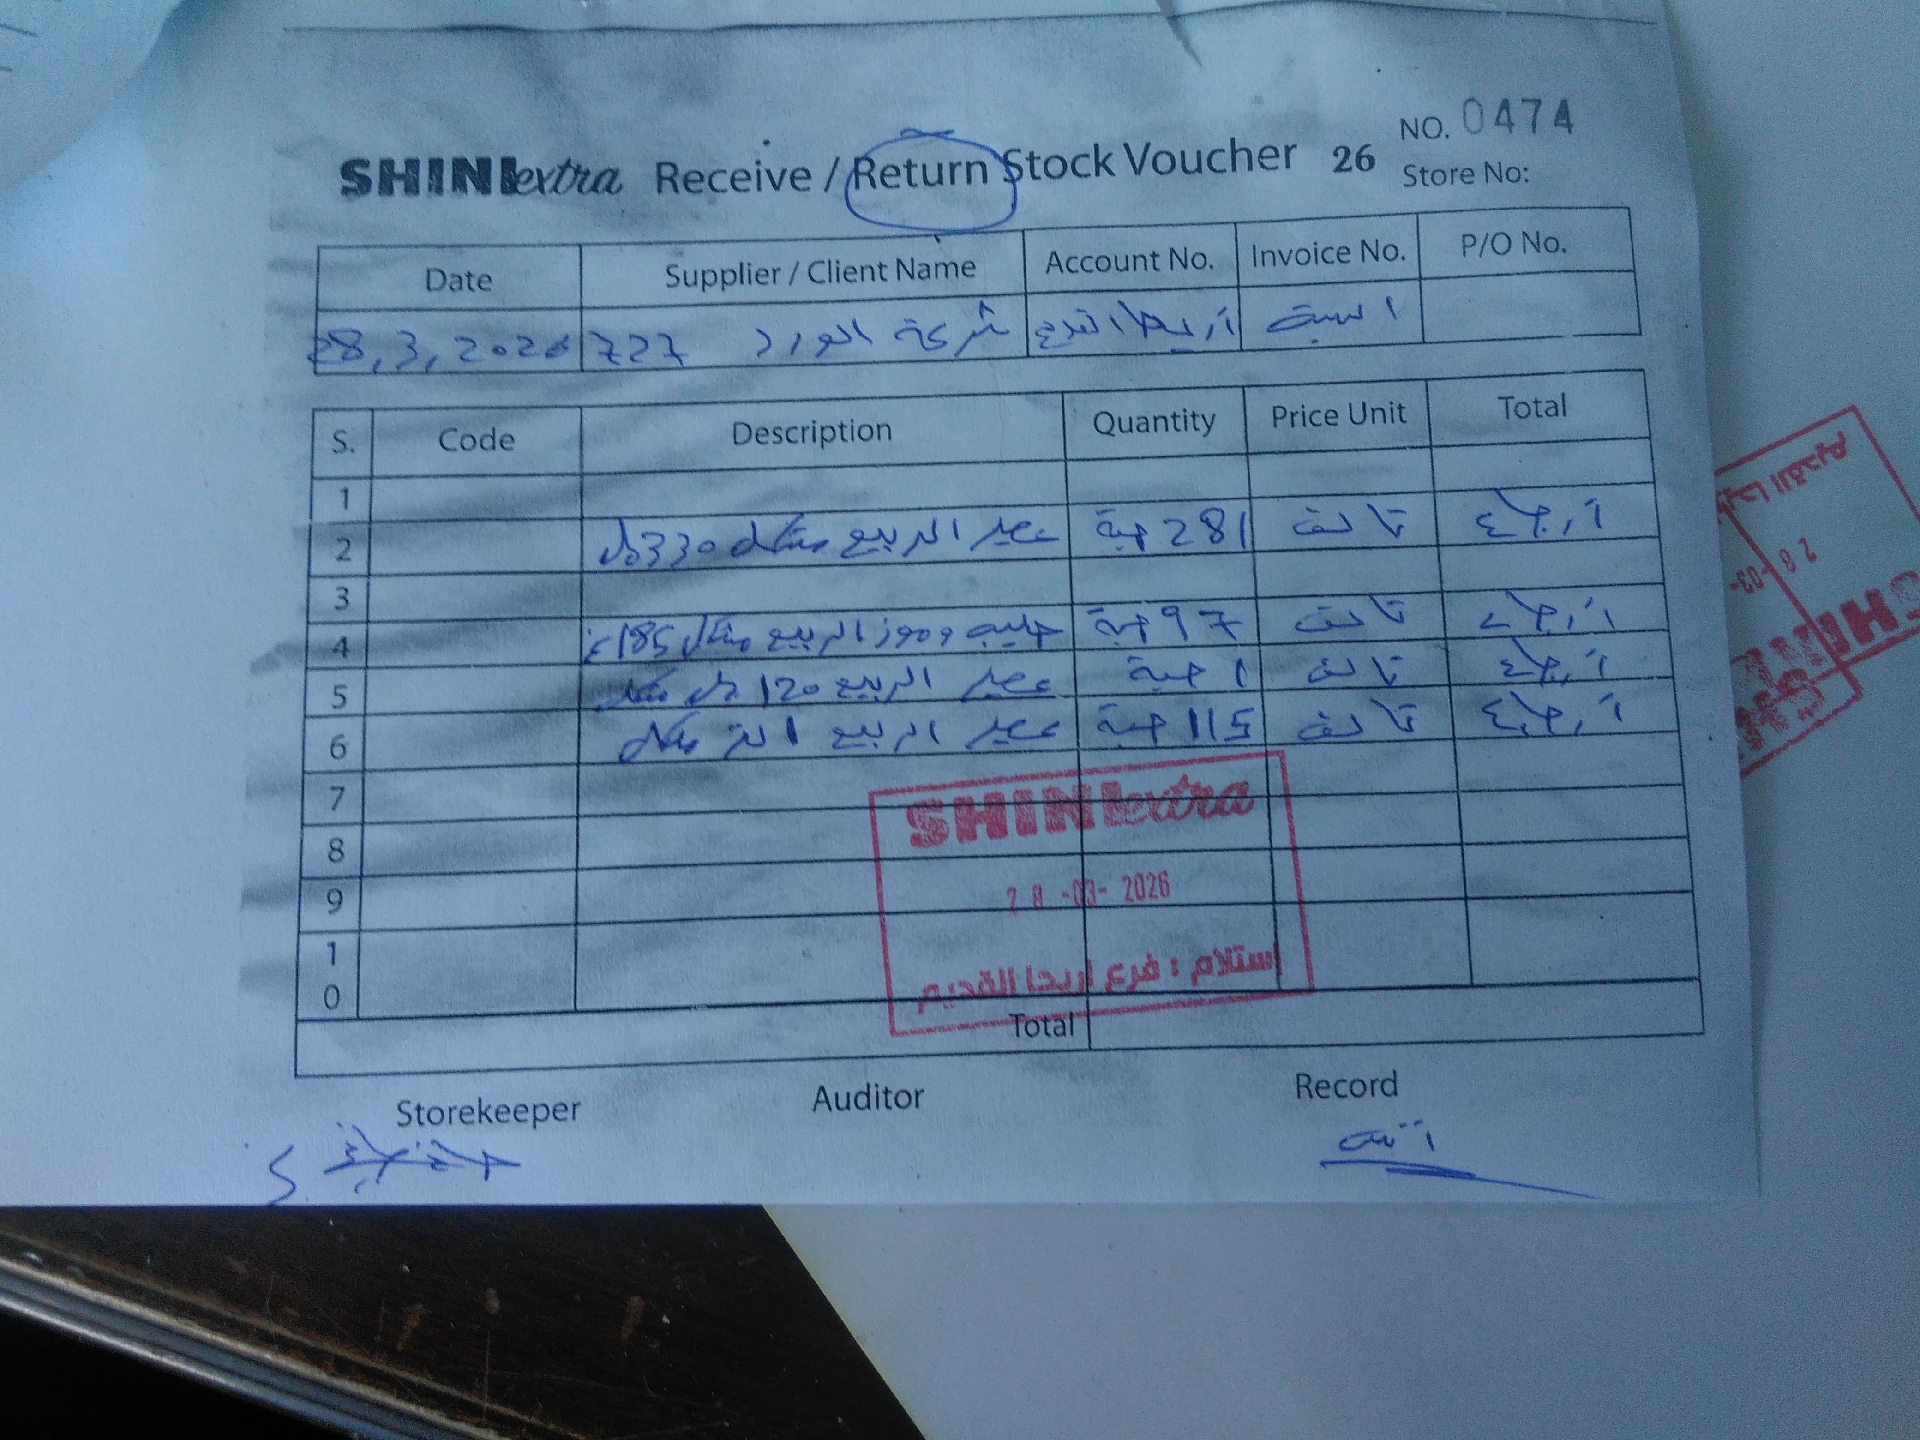 NO. 0474
SHINI extra Receive / Return Stock Voucher 26
Store No:
Date Supplier / Client Name Account No. Invoice No. P/O No.
28,3,2026 727 شركة الورد اريحا القديم السبت
S. Code Description Quantity Price Unit Total
1
2 عصير الربيع مشكل 330 مل 281 حبة تالف ارجاع
3
4 حليب وموز الربيع مشكل 185 غ 97 حبة تالف ارجاع
5 عصير الربيع 120 مل مشكل 1 حبة تالف ارجاع
6 عصير الربيع 1 لتر مشكل 115 حبة تالف ارجاع
7
8
9
10
SHINI extra
28 -03- 2026
استلام : فرع اريحا القديم
Total
Storekeeper Auditor Record
اريحا القديم
28 -03-
SHINI